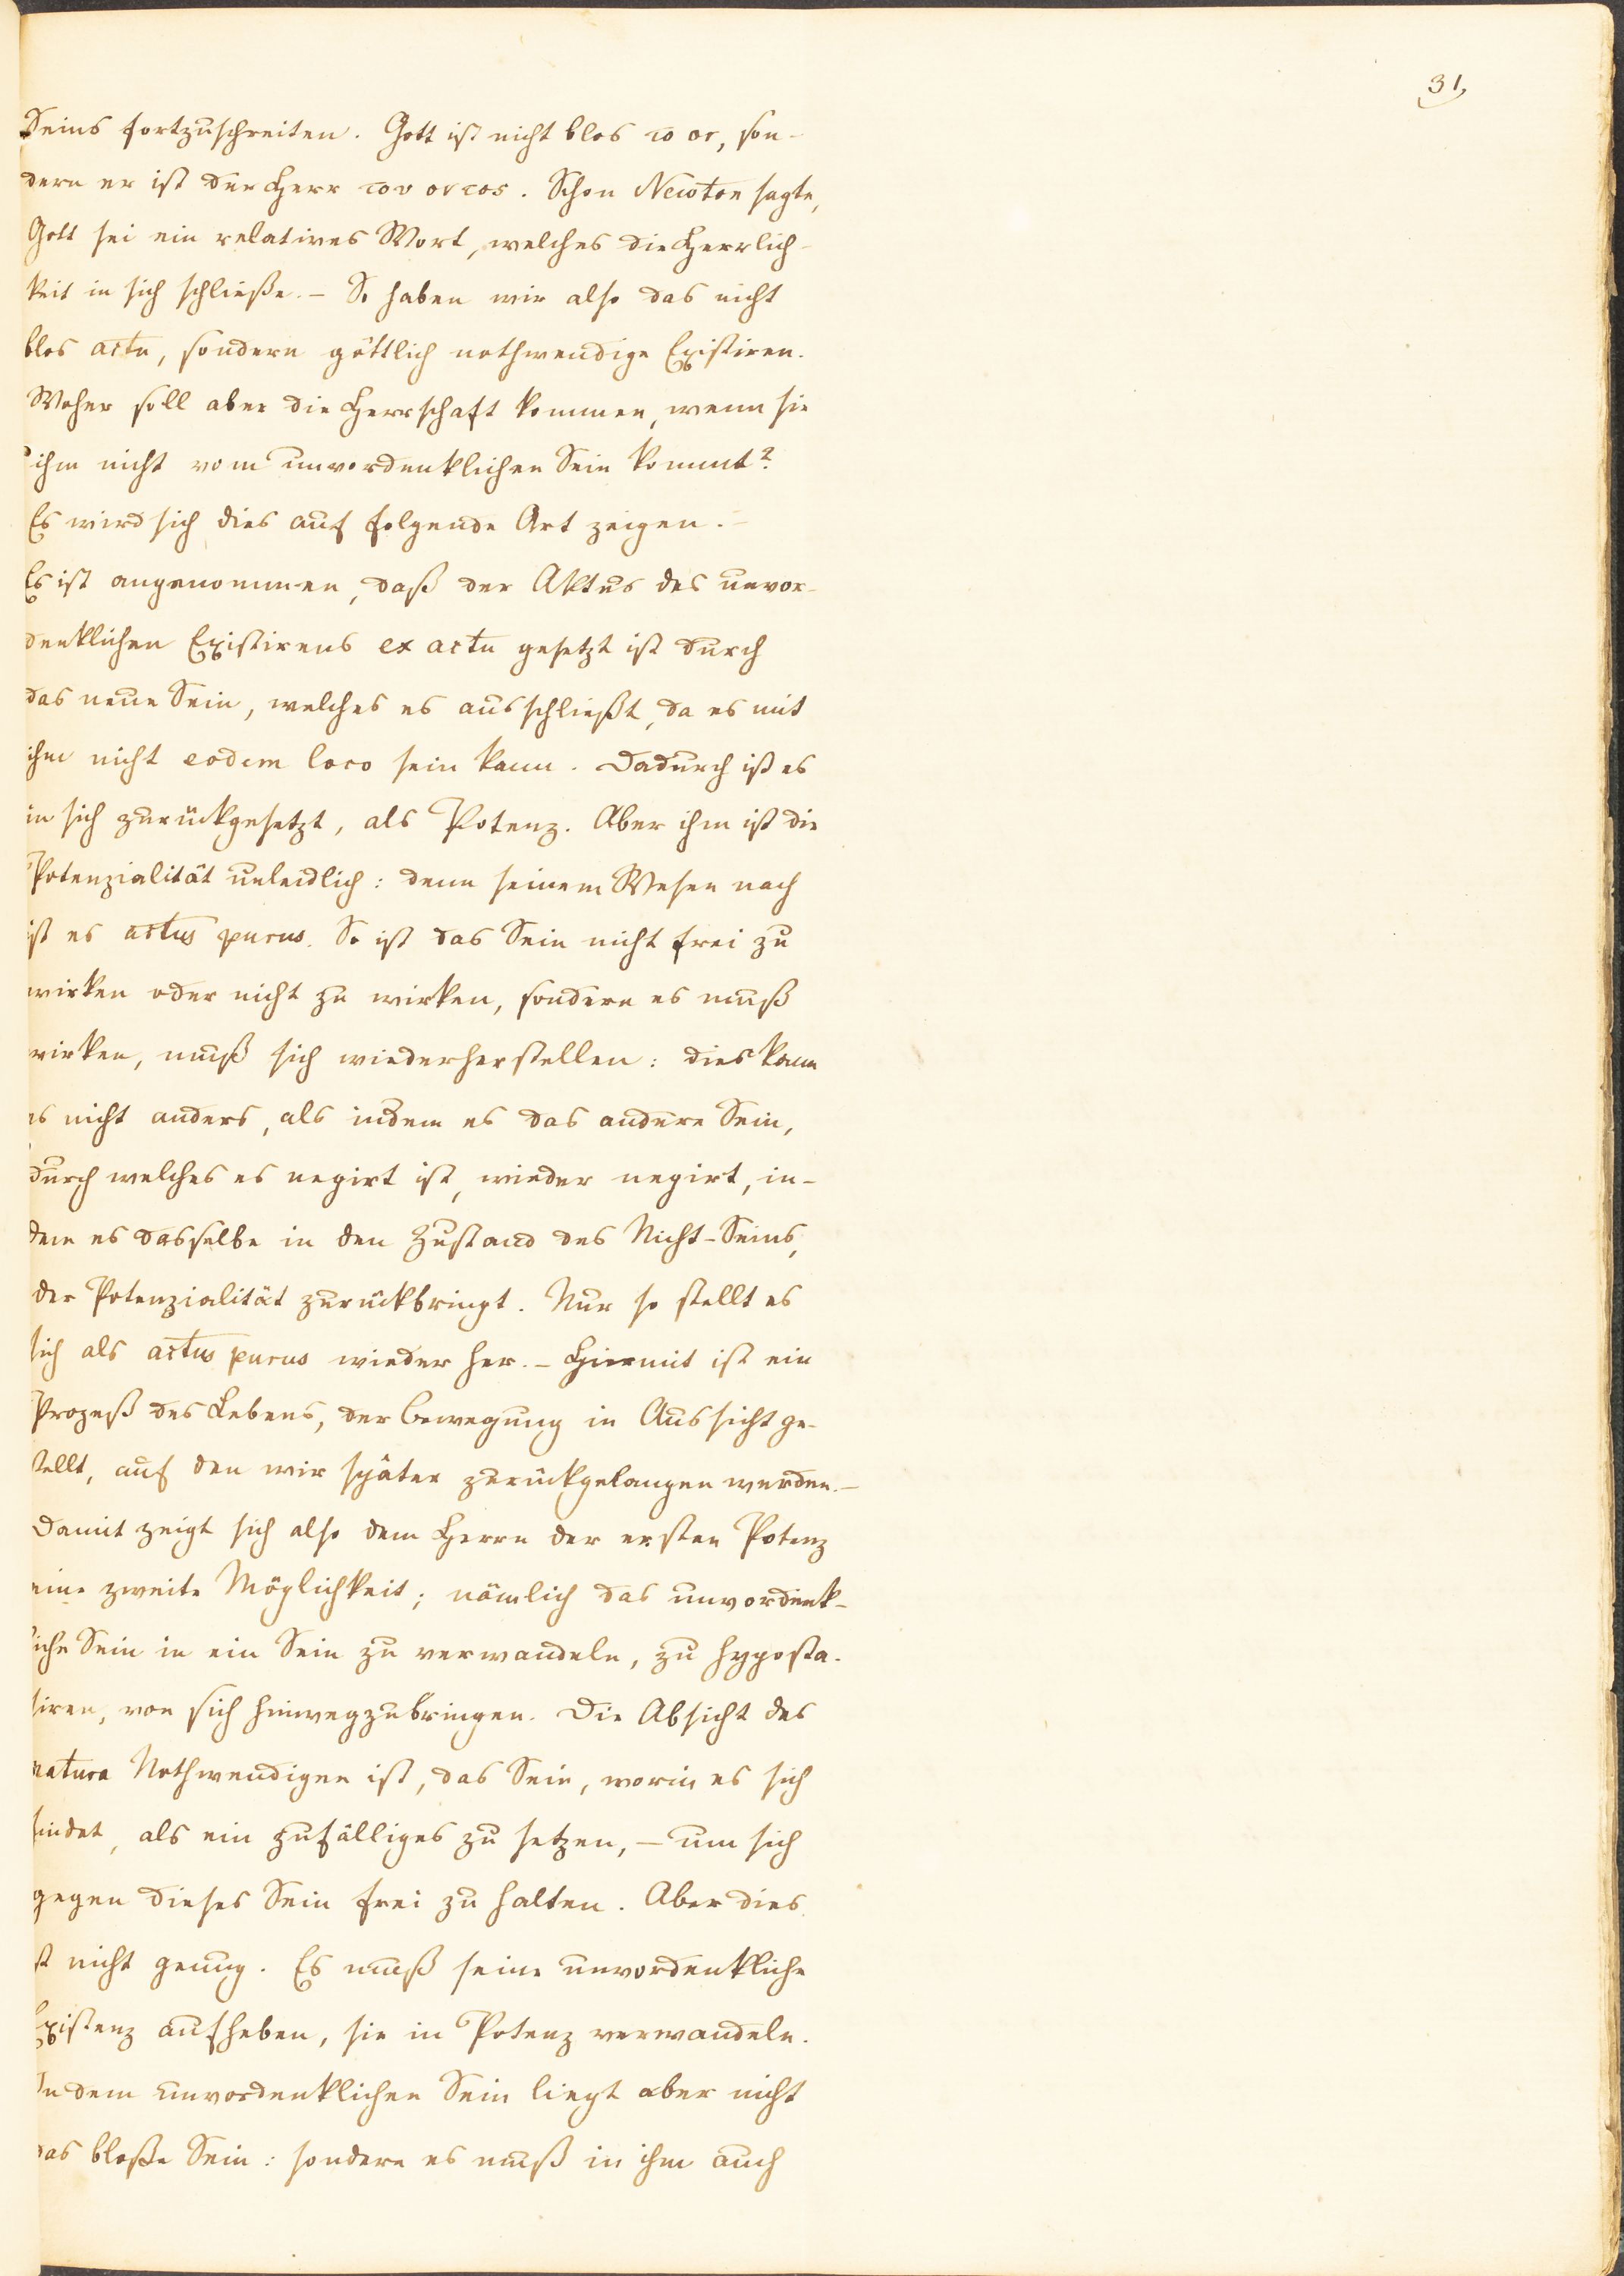 31,
Seins fortzuschreiten. Gott ist nicht blos το ον, son-
dern er ist der Herr του οντος. Schon Newton sagte,
Gott sei ein relatives Wort, welches die Herrlich-
keit in sich schließe. – So haben wir also das nicht
blos actu, sondern göttlich nothwendige Existiren.
Woher soll aber die Herrschaft kommen, wenn sie
ihm nicht vom unvordenklichen Sein kommt?
Es wird sich dies auf folgende Art zeigen. –
Es ist angenommen, daß der Aktus des unvor-
denklichen Existirens ex actu gesetzt ist durch
das neue Sein, welches es ausschließt, da es mit
ihm nicht eodem loco sein kann. Dadurch ist es
in sich zurückgesetzt, als Potenz. Aber ihm ist die
Potenzialität unleidlich: denn seinem Wesen nach
ist es actus purus. So ist das Sein nicht frei zu
wirken oder nicht zu wirken, sondern es muß
wirken, muß sich wiederherstellen: dies kann
es nicht anders, als indem es das andere Sein,
durch welches es negirt ist, wieder negirt, in-
dem es dasselbe in den Zustand des Nicht-Seins,
der Potenzialität zurückbringt. Nur so stellt es
sich als actus purus wieder her. – Hiermit ist ein
Prozeß des Lebens, der Bewegung in Aussicht ge-
stellt, auf den wir später zurückgelangen werden. –
Damit zeigt sich also dem Herrn der ersten Potenz
eine zweite Möglichkeit; nämlich das unvordenk-
liche Sein in ein Sein zu verwandeln, zu hyposta-
siren, von sich hinwegzubringen. Die Absicht des
natura Nothwendigen ist, das Sein, worin es sich
findet, als ein zufälliges zu setzen, – um sich
gegen dieses Sein frei zu halten. Aber dies
ist nicht genug. Es muß seine unvordenkliche
Existenz aufheben, sie in Potenz verwandeln.
In dem unvordenklichen Sein liegt aber nicht
das bloße Sein: sondern es muß in ihm auch